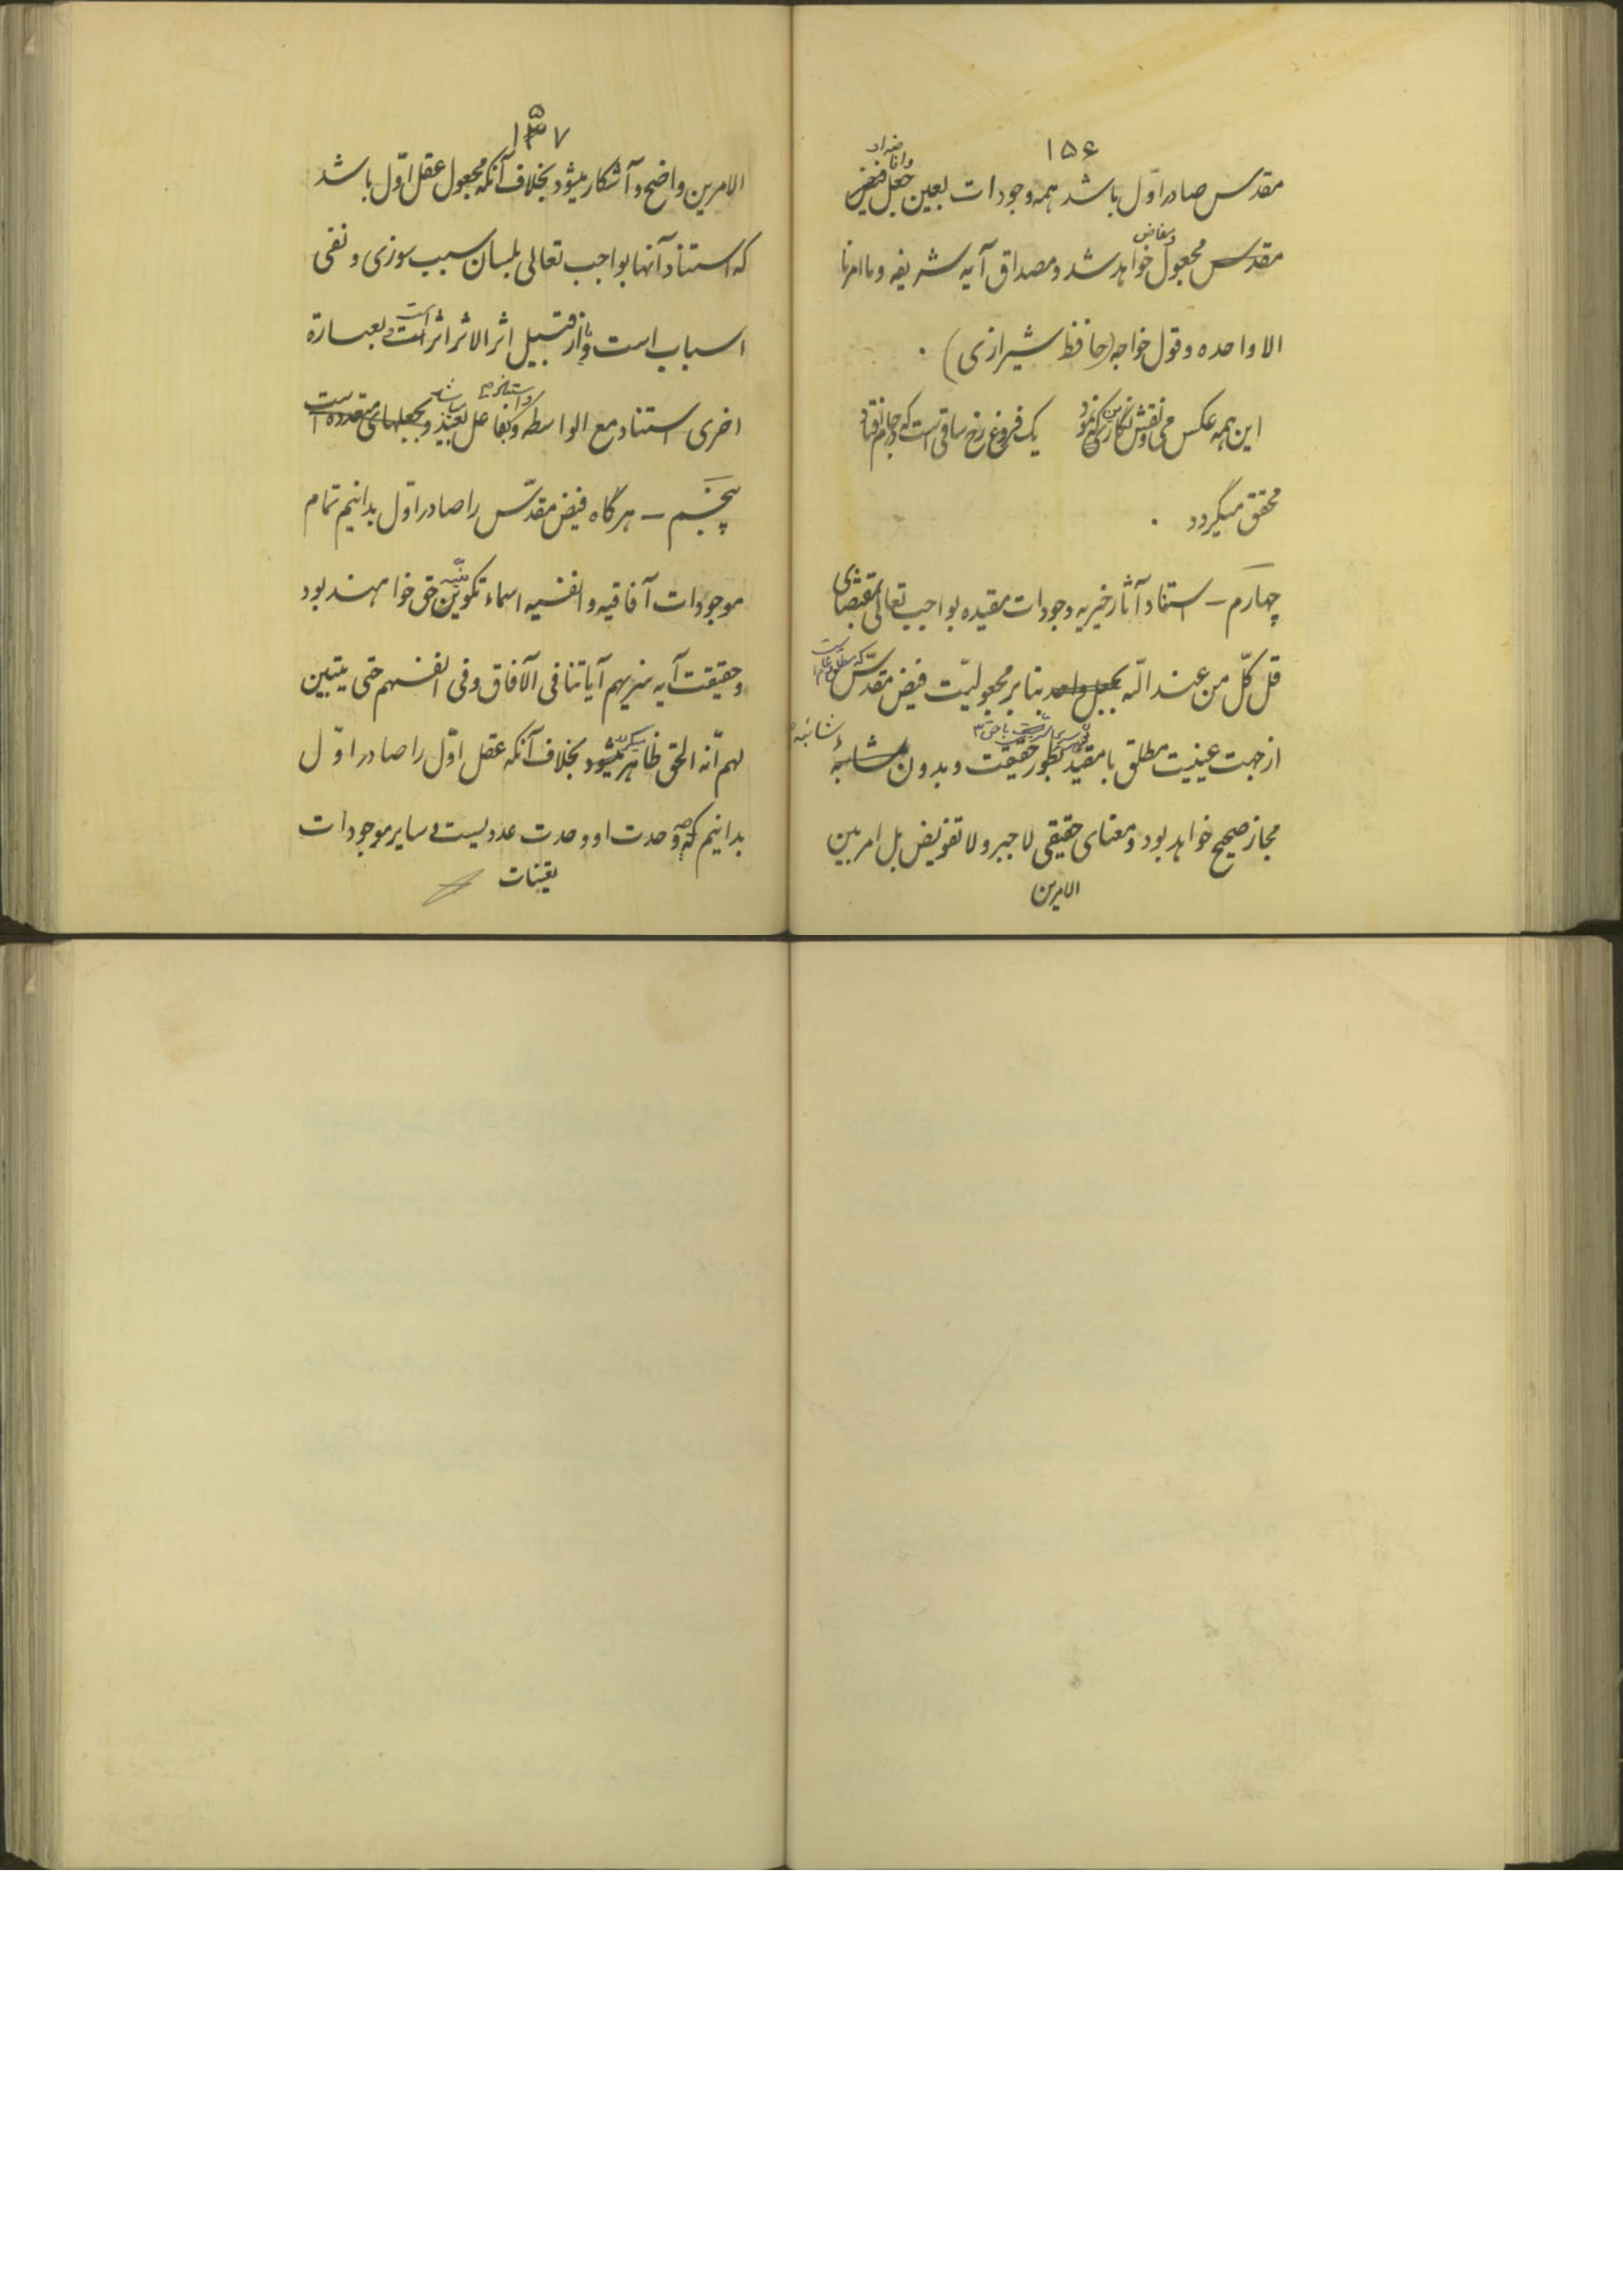 ۱۵۶
مقدس صادر اوّل باشد همه وجودات بعین جعل فیض
مقدس مجعول خواهد شد و مصداق آیه شریفه و ما امرنا
و مفاض
الا واحده و قول خواجه (حافظ شیرازی) .
این همه عکس می و نقش نگارین که نمود یک فروغ رخ ساقی است که در جام افتاد
محقق میگردد .
چهارم – استناد آثار خیریه وجودات مقیده بواجب تعالی بمقتضای
قل کلّ من عند اللّه بجعل واحد بنا بر مجعولیّت فیض مقدّس
از جهت عینیت مطلق با مقید بطور حقیقت و بدون شائبه
مجاز صحیح خواهد بود و معنای حقیقی لا جبر و لا تفویض بل امر بین
الامرین
۱۵۷
الامرین واضح و آشکار میشود بخلاف آنکه مجعول عقل اوّل باشد
که استناد آنها بواجب تعالی بلسان سبب سوزی و نفی
اسباب است و از قبیل اثر الاثر اثر است و بعبارة
اخری استناد مع الواسطه و بفاعل بعید و بجعلهای متعدده است
پنجم – هرگاه فیض مقدّس را صادر اوّل بدانیم تمام
موجودات آفاقیه و انفسیه اسماء تکوینیّه حق خواهند بود
و حقیقت آیه سنریهم آیاتنا فی الآفاق و فی انفسهم حتی یتبین
لهم انّه الحق ظاهر میشود بخلاف آنکه عقل اوّل را صادر اوّل
بدانیم که وحدت او وحدت عددیست و سایر موجودات
تعینات